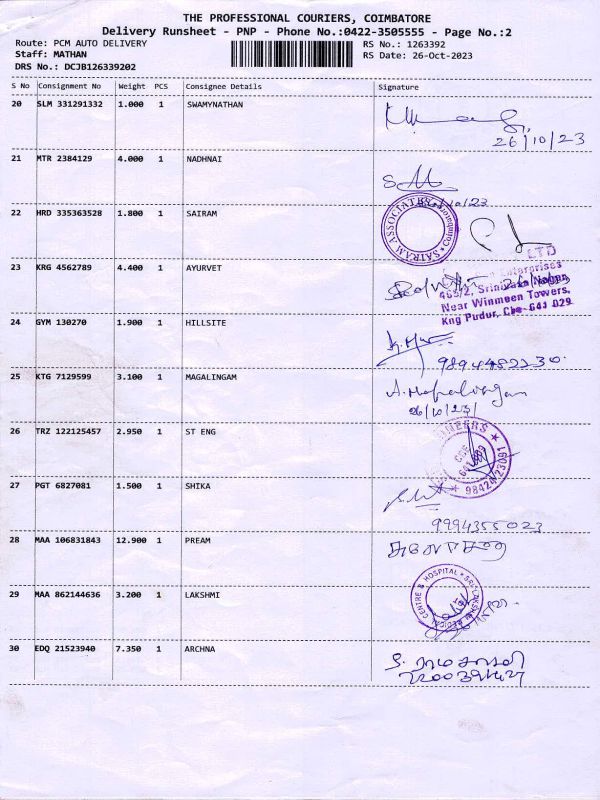 THE PROFESSIONAL COURIERS, COIMBATORE
Delivery Runsheet - PNP - Phone No.:0422-3505555 - Page No.:2
Route: PCM AUTO DELIVERY
Staff: MATHAN
DRS No.: DCJB126339202
RS No.: 1263392
RS Date: 26-Oct-2023
S No Consignment No Weight PCS Consignee Details Signature
20 SLM 331291332 1.000 1 SWAMYNATHAN
26/10/23
21 MTR 2384129 4.000 1 NADHNAI
22 HRD 335363528 1.800 1 SAIRAM
SAIRAM ASSOCIATES
23 KRG 4562789 4.400 1 AYURVET
LTD
Enterprises
463/2, Srinivasa Nagar,
Near Winmeen Towers,
Kng Pudur, Cbe-641 029
24 GYM 130270 1.900 1 HILLSITE
25 KTG 7129599 3.100 1 MAGALINGAM
A. Mapalingam
26/10/23
26 TRZ 122125457 2.950 1 ST ENG
98424/23091
27 PGT 6827081 1.500 1 SHIKA
9994355023
28 MAA 106831843 12.900 1 PREAM
29 MAA 862144636 3.200 1 LAKSHMI
SRI LAKSHMI MEDICAL CENTRE & HOSPITAL
30 EDQ 21523940 7.350 1 ARCHNA